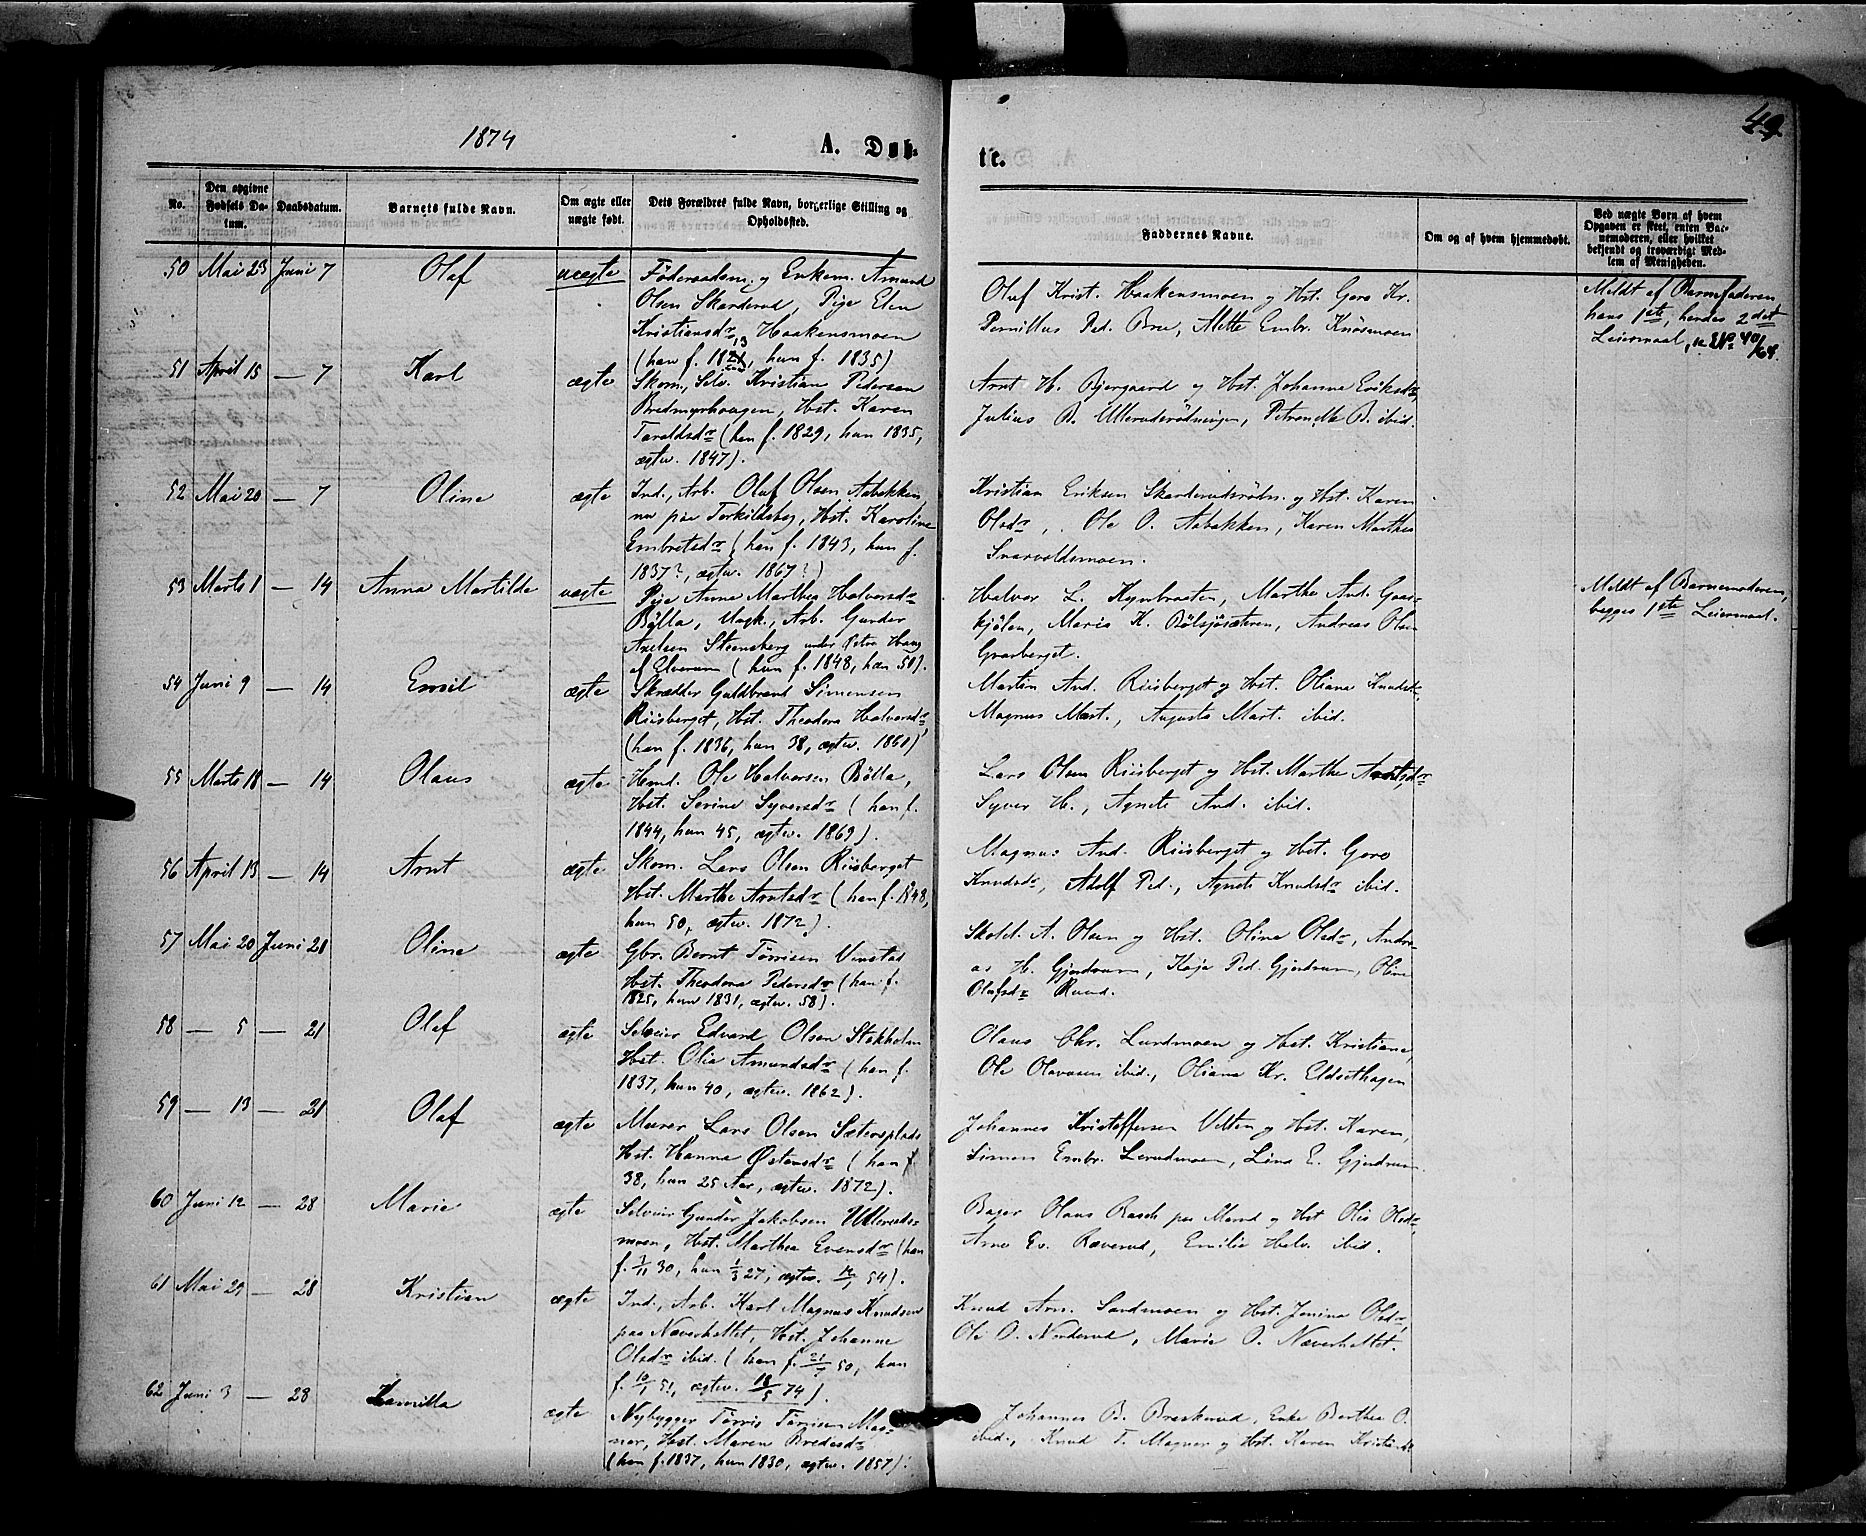 49
1874
A. Døb-
te.
No.
Den opgivne Fødsels Da-tum.
Daabsdatum.
Barnets fulde Navn.
Om ægte eller uægte født.
Dets Forældres fulde Navn, borgerlige Stilling og Opholdssted.
Faddernes Navne.
Om og af hvem hjemmedøbt.
Ved uægte Børn af hvem Opgaven er skeet, enten Bar-nemoderen, eller hvilket bekjendt og troværdigt Med-lem af Menigheden.
50 Mai 23 Juni 7 Olaf uægte
Føderaadsm. og Enkem. Amund
Olsen Skarderud, Pige Elen
Kristiansdr, Haakensmoen
(han f. 1821, hun f. 1835)
Oluf Krist. Haakensmoen og Hst. Goro Kr.
Pernillus Ped. Bru, Mette Embr. Knosmoen
Meldt af Barnefaderen
hans 1ste, hendes 2det
Leiermaal, No 40/64.
51 April 15 — 7 Karl ægte
Skom., Selv. Kristian Pedersen
Bredmyrhaugen, Hst. Karen
Taraldsdr (han f. 1829, hun 1835,
ægtev. 1847).
Arnt H. Bjergaard og Hst. Johanna Eriksdr,
Julius B. Ullerudsrødningen, Petronelle B. ibid.
52 Mai 20 — 7 Oline ægte
Ind., Arb. Oluf Olsen Aabakken
nu paa Torkildsby, Hst. Karoline
Embretsdr (han f. 1843, hun f.
1837?, ægtev. 1867?)
Kristian Eriksen Skarderudsrødn. og Hst. Karen
Olsdr, Ole O. Aabakken, Karen Marthea
Snarvoldsmoen.
53 Marts 1 — 14 Anna Martilde uægte
Pige Anna Marthea Halvorsdr
Bølla, Ungk., Arb. Gunder
Axelsen Steensberg under Østre Haug
af Elverum (hun f. 1848, han 50).
Halvor L. Kynbraaten, Marthe And. Graa-
kjølen, Maria K. Bølsjøsæteren, Andreas Olsen
Graaberget.
Meldt af Barnemoderen,
begges 1ste Leiermaal.
54 Juni 9 — 14 Emil ægte
Skrædder Guldbrand Simensen
Riisberget, Hst. Theodora Halvorsdr,
(han f. 1836, hun 38, ægtev. 1861)
Martin And. Riisberget og Hst. Oliana Knudsdr,
Magnus Mart., Augusta Mart. ibid.
55 Marts 18 — 14 Olaus ægte
Hmd. Ole Halvorsen Bølla,
Hst. Serine Syversdr (han f.
1844, hun 45, ægtev. 1869).
Lars Olsen Riisberget og Hst. Marthe Arntsdr
Syver H., Agnete And. ibid.
56 April 13 — 14 Arnt ægte
Skom. Lars Olsen Riisberget
Hst. Marthe Arntsdr (han f. 1848,
hun 50, ægtev. 1872).
Magnus And. Riisberget og Hst. Goro
Knudsdr, Adolf Ped., Agnete Knudsdr ibid.
57 Mai 20 Juni 21 Oline ægte
Gbr. Bernt Tørrisen Vinstad
Hst. Theodora Pedersdr (han f.
1825, hun 1831, ægtev. 58).
Skolel. A. Olsen og Hst. Olina Olsdr, Andre-
as H. Gjerdrum, Kaja Ped. Gjerdrum, Oline
Olufsdr Ruud.
58 — 5 — 21 Olaf ægte
Selveier Edvard Olsen Stokholm
Hst. Olia Amundsdr (han f.
1837, hun 40, ægtev. 1862).
Olaus Chr. Lundmoen og Hst. Kristiane,
Ole Olavesen ibid., Oliana Kr. Eldsethagen
59 — 13 — 21 Olaf ægte
Murer Lars Olsen Sætersplads
Hst. Hanna Østensdr (han f.
38, hun 25 Aar, ægtev. 1872).
Johannes Kristoffersen Velten og Hst. Karen,
Simen Embr. Lerudmoen, Lina E. Gjerdrum.
60 Juni 12 — 28 Marie ægte
Selveier Gunder Jakobsen Ulleruds-
moen, Hst. Marthea Evensdr (han
f. 2/11 30, hun 1/3 27, ægtev. 54).
Bager Olaus Rasch paa Mund og Hst Olia Olsdr,
Arne Ev. Ræverud, Emilie Halv. ibid.
61 Mai 29 — 28 Kristian ægte
Ind., Arb. Karl Magnus Knudsen
paa Næverholtet, Hst. Johanne
Olsdr ibid. (han f. 50, hun
f. 51, ægtev. 18/5 74).
Knud Arn. Sandmoen og Hst. Jenina Olsdr,
Ole O. Norderud, Marie O. Næverholtet.
62 Juni 3 — 28 Kamilla ægte
Nybygger Tørris Tørrisen Mag-
nor, Hst. Maren Bredesdr
(han f. 1837, hun 1830, ægtev. 1857).
Johannes B. Braskerud, Enke Berthea O.
ibid., Knud T. Magnor og Hst. Karen Kristiansdr